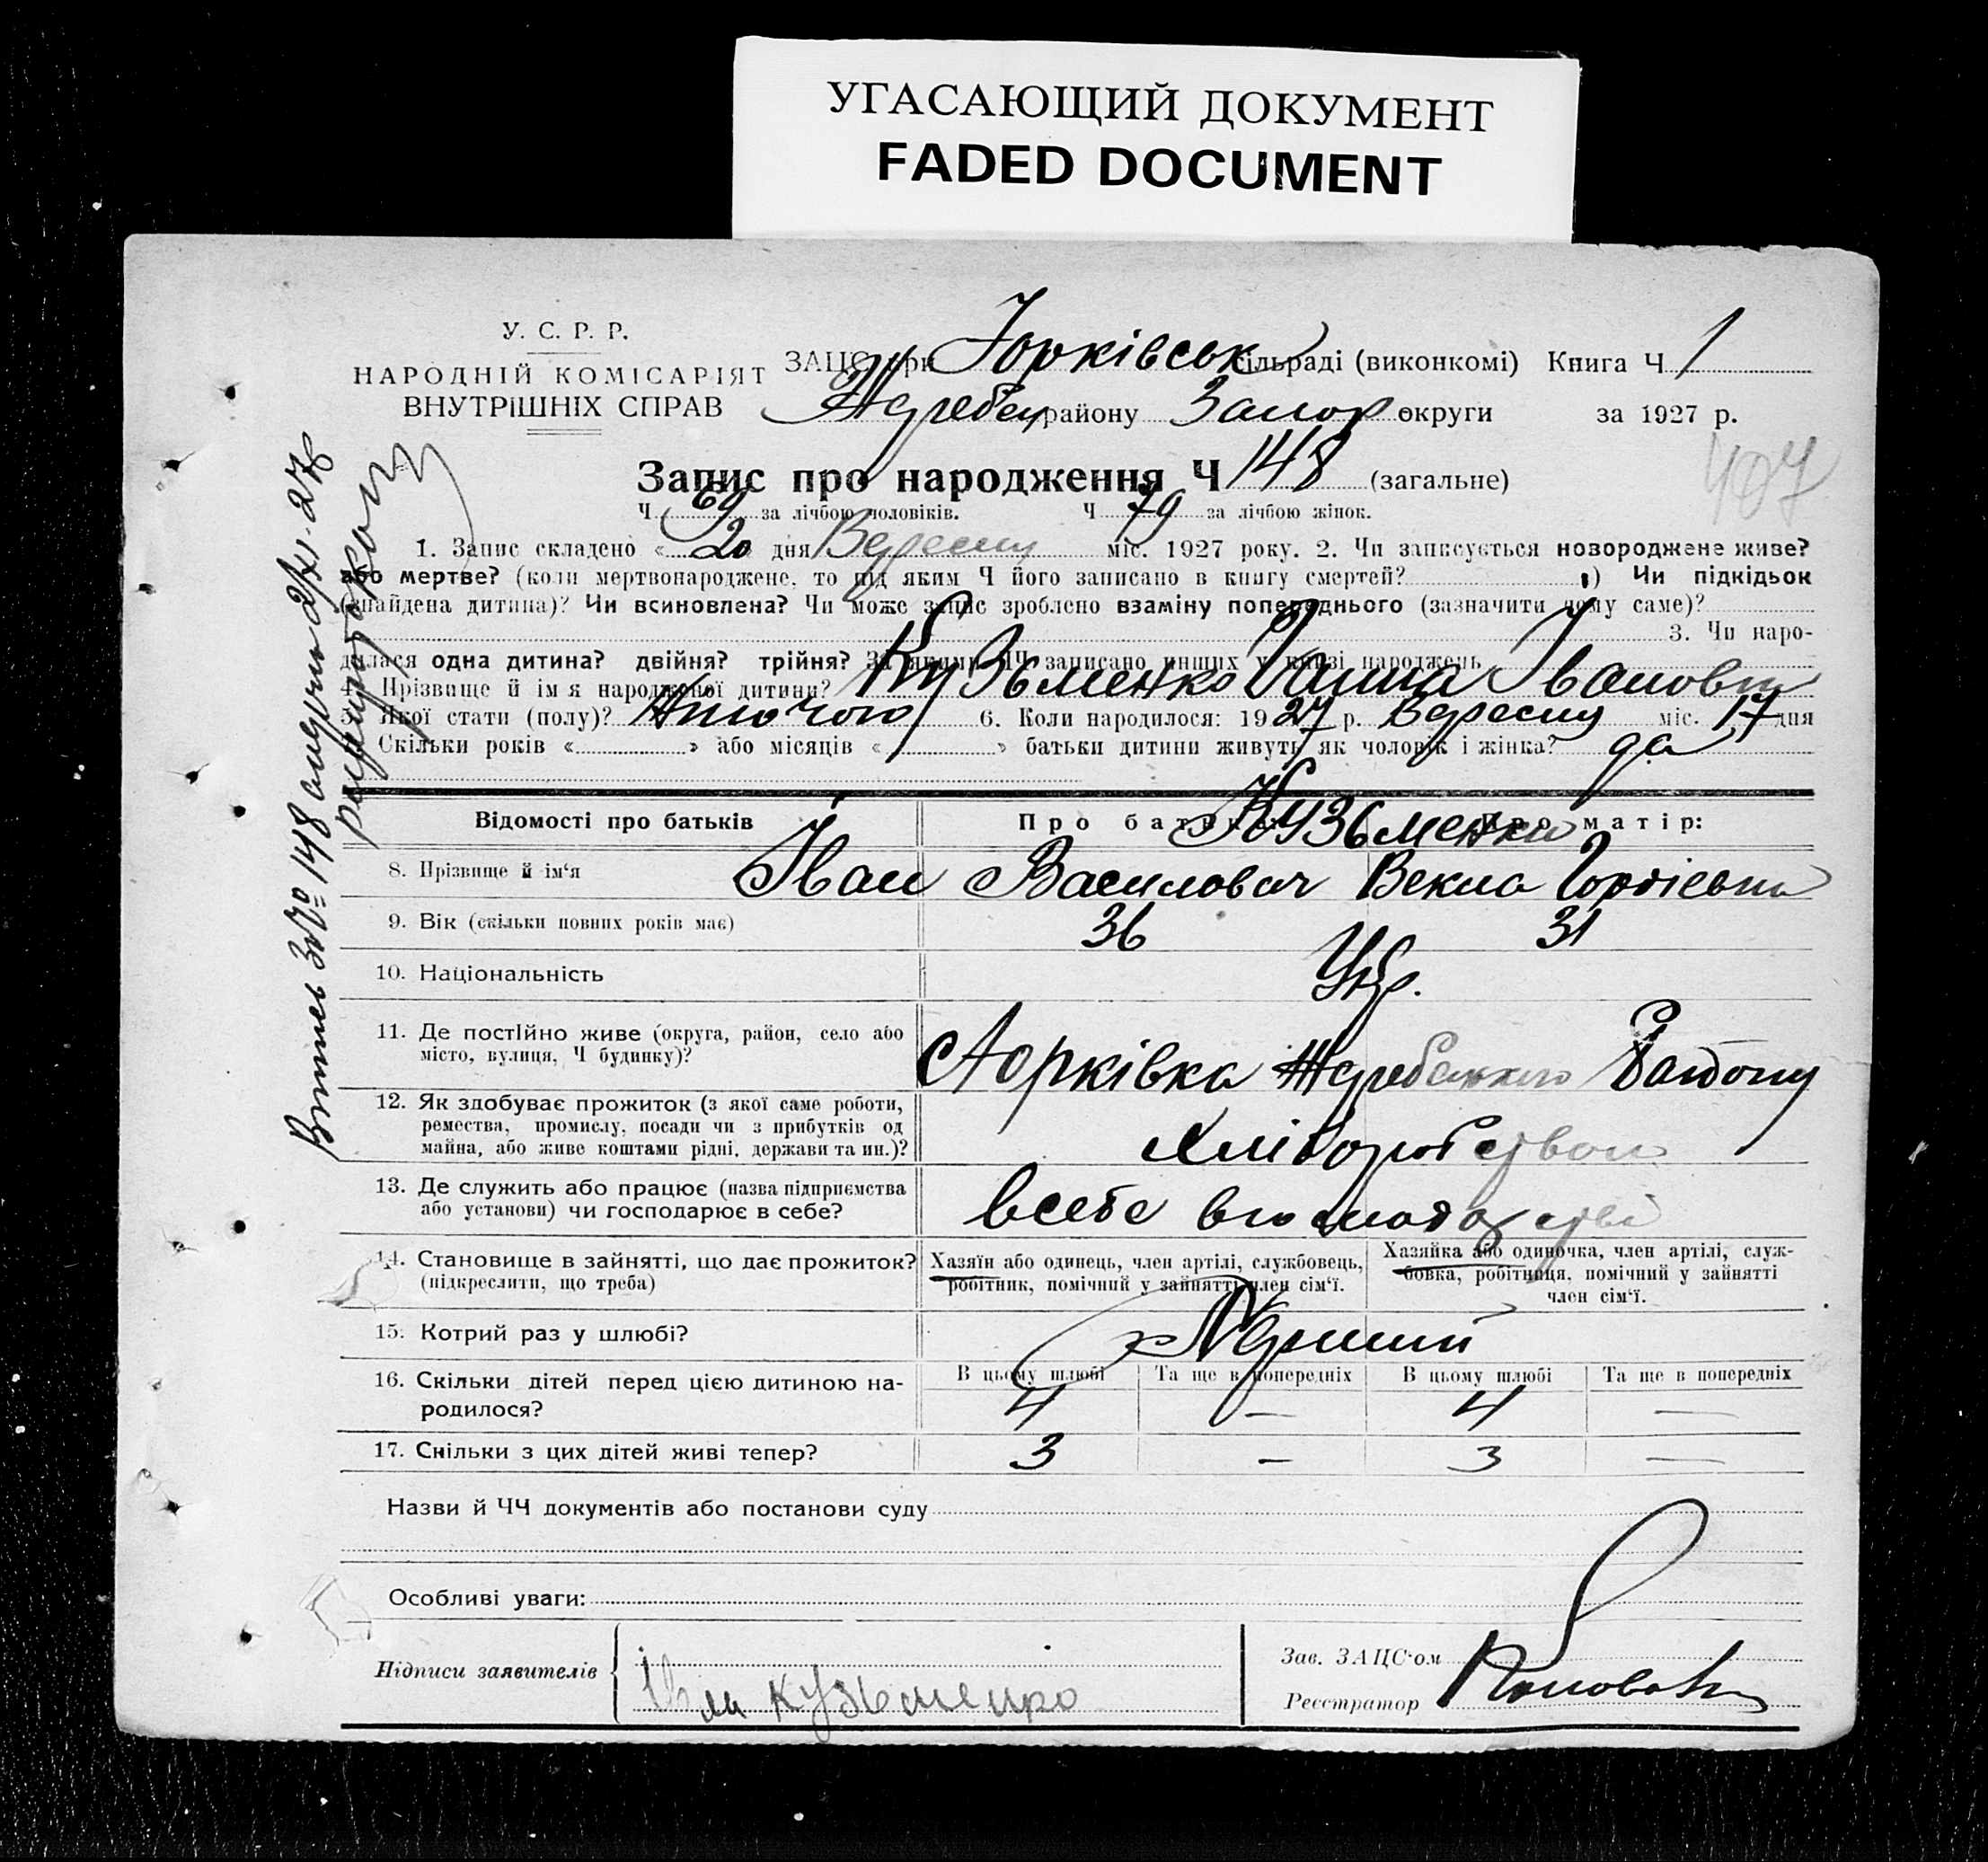 УГАСАЮЩИЙ ДОКУМЕНТ
FADED DOCUMENT
У. С. Р. Р.
НАРОДНІЙ КОМІСАРІЯТ
ВНУТРІШНІХ СПРАВ
ЗАЦС при Юрківськ сільраді (виконкомі) Книга Ч 1
Жеребец району Запор округи за 1927 р.
407
Запис про народження Ч 148 (загальне)
Ч 69 за лічбою чоловіків. Ч 79 за лічбою жінок.
1. Запис складено « 20 дня Вересня міс. 1927 року. 2. Чи записується новороджене живе?
або мертве? (коли мертвонароджене, то під яким Ч його записано в книгу смертей? ) Чи підкідьок
(знайдена дитина)? Чи всиновлена? Чи може запис зроблено взаміну попереднього (зазначити чому саме)?
3. Чи наро-
дилася одна дитина? двійня? трійня? За якими ЧЧ записано инших у книзі народжень
4. Прізвище й ім'я народженої дитини? Кузьменко Ганна Івановна
5. Якої стати (полу)? Жіночого 6. Коли народилося: 1927 р. Вересня міс. 17 дня
Скільки років « » або місяців « » батьки дитини живуть як чоловік і жінка? да
Відомості про батьків Про батька: Про матір:
Кузьменки
8. Прізвище й ім'я Іван Василович Векла Гордієвна
9. Вік (скільки повних років має) 36 31
10. Національність Укр.
11. Де постійно живе (округа, район, село або
місто, вулиця, Ч будинку)?
Юрківка Жеребецького Району
12. Як здобуває прожиток (з якої саме роботи,
ремества, промислу, посади чи з прибутків од
майна, або живе коштами рідні, держави та ин.)?
Хліборобством
13. Де служить або працює (назва підприємства
або установи) чи господарює в себе?
в себе в господарстві
14. Становище в зайнятті, що дає прожиток?
(підкреслити, що треба)
Хазяїн або одинець, член артілі, службовець,
робітник, помічний у зайнятті член сім'ї.
Хазяйка або одиночка, член артілі, служ-
бовка, робітниця, помічний у зайнятті
член сім'ї.
15. Котрий раз у шлюбі? Перший
16. Скільки дітей перед цією дитиною на-
родилося?
В цьому шлюбі Та ще в попередніх В цьому шлюбі Та ще в попередніх
4 — 4 —
17. Скільки з цих дітей живі тепер? 3 — 3 —
Назви й ЧЧ документів або постанови суду
Особливі уваги:
Підписи заявителів
Іван Кузьменко
Зав. ЗАЦС'ом
Реєстратор